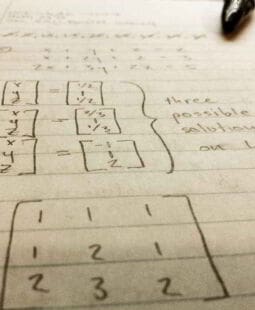 x + y + z = 2
x + 2y + z = 3
2x + 3y + 2z = 5
[x y z] = [1/2 1 1/2]
[x y z] = [2/3 1 1/3]
[x y z] = [-1 1 2]
three
possible
solution
on L
1 1 1
1 2 1
2 3 2